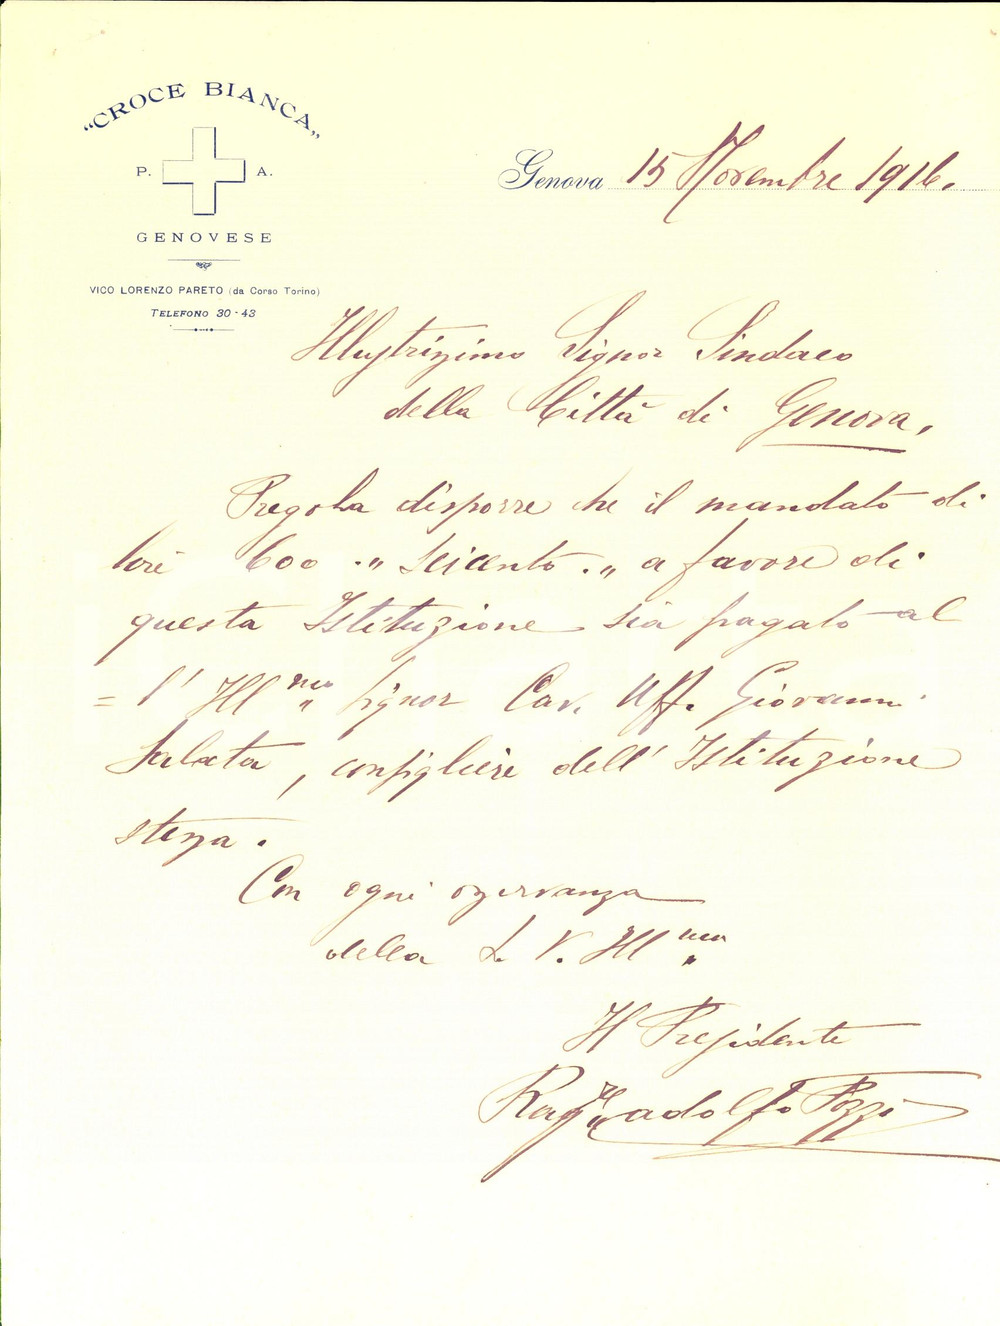 "CROCE BIANCA„
P. A.
GENOVESE
VICO LORENZO PARETO (da Corso Torino)
TELEFONO 30-43
Genova 15 Novembre 1916.
Illustrissimo Signor Sindaco
della Città di Genova,
Pregola disporre che il mandato di
lire 600 „ seicento „ a favore di
questa Istituzione sia pagato al
= l' Ill mo „ Signor Cav. Uff. Giovanni
Salata, consigliere dell' Istituzione
stessa.
Con ogni osservanza
della S. V. Ill ma „
Il Presidente
Rag. Pozzi